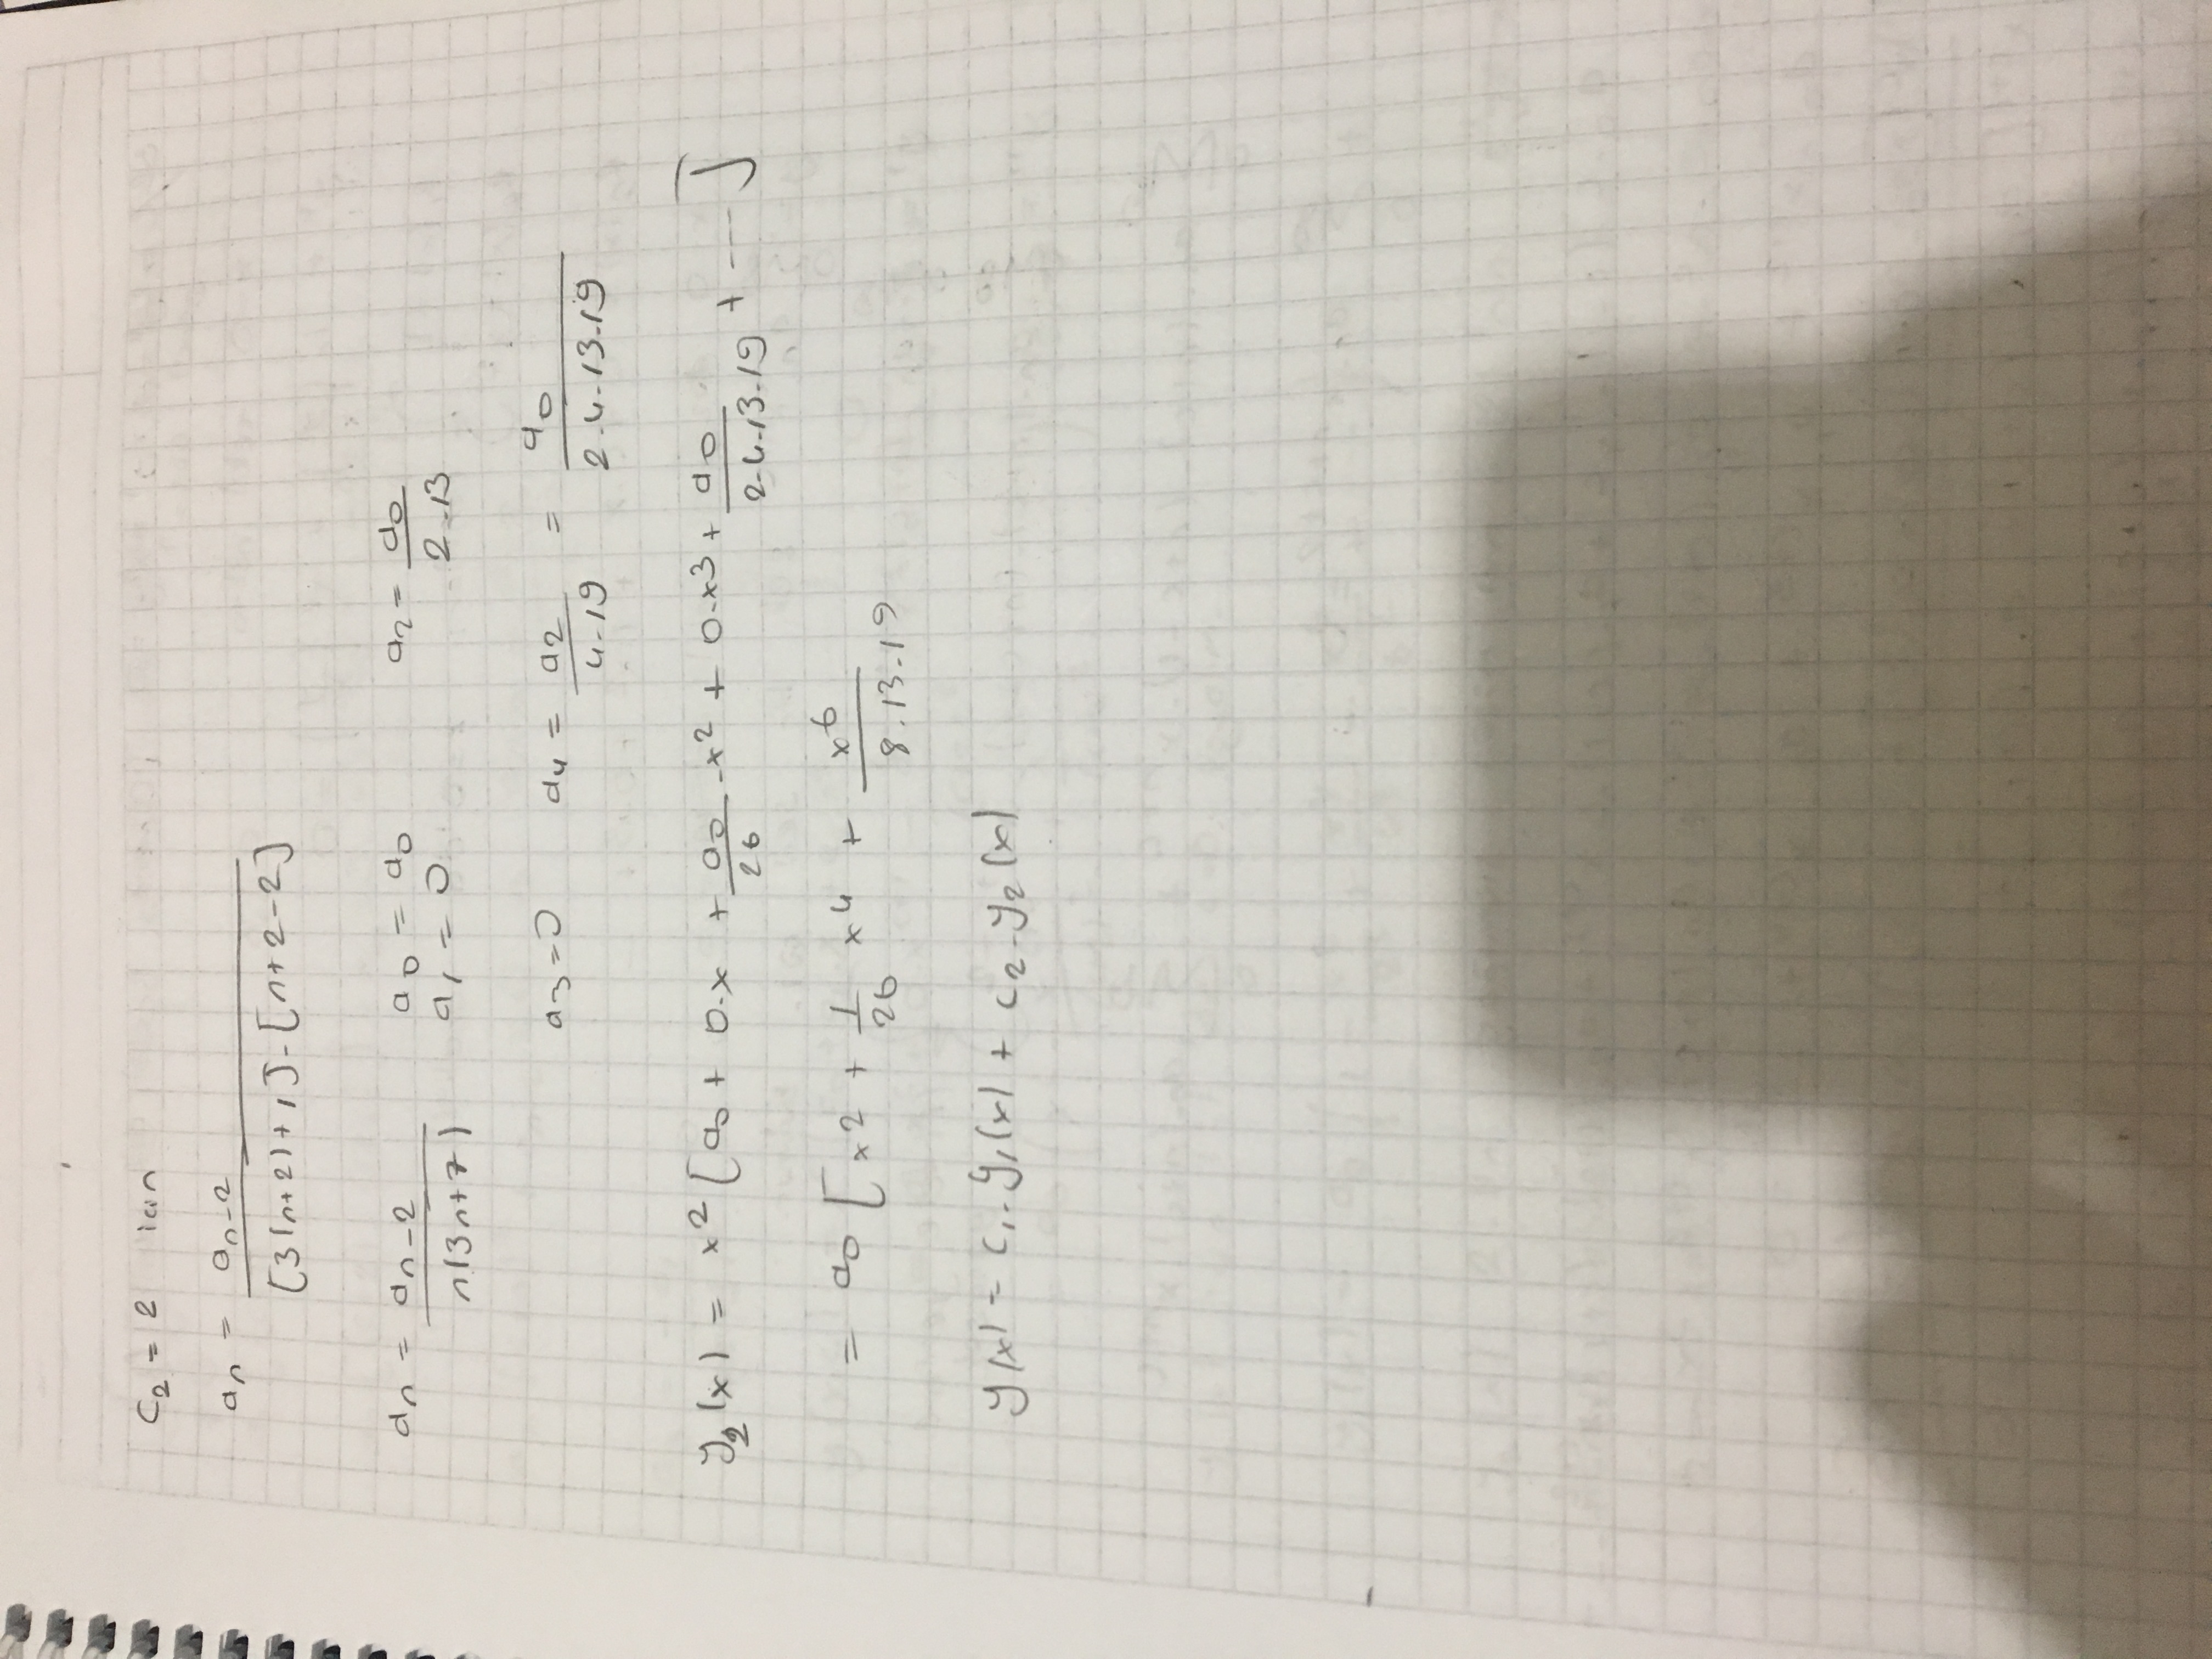 c₂ = 2 için
aₙ = aₙ₋₂ / [3(n+2)+1].[n+2-2]
aₙ = aₙ₋₂ / n(3n+7) a₀ = a₀ a₂ = a₀ / 2.13
a₁ = 0
a₃ = 0 a₄ = a₂ / 4.19 = a₀ / 2.4.13.19
y₂(x) = x² [a₀ + 0.x + a₀/26 .x² + 0.x³ + a₀ / 2.4.13.19 + ---]
= a₀ [x² + 1/26 x⁴ + x⁶ / 8.13.19
y(x) = c₁.y₁(x) + c₂.y₂(x)